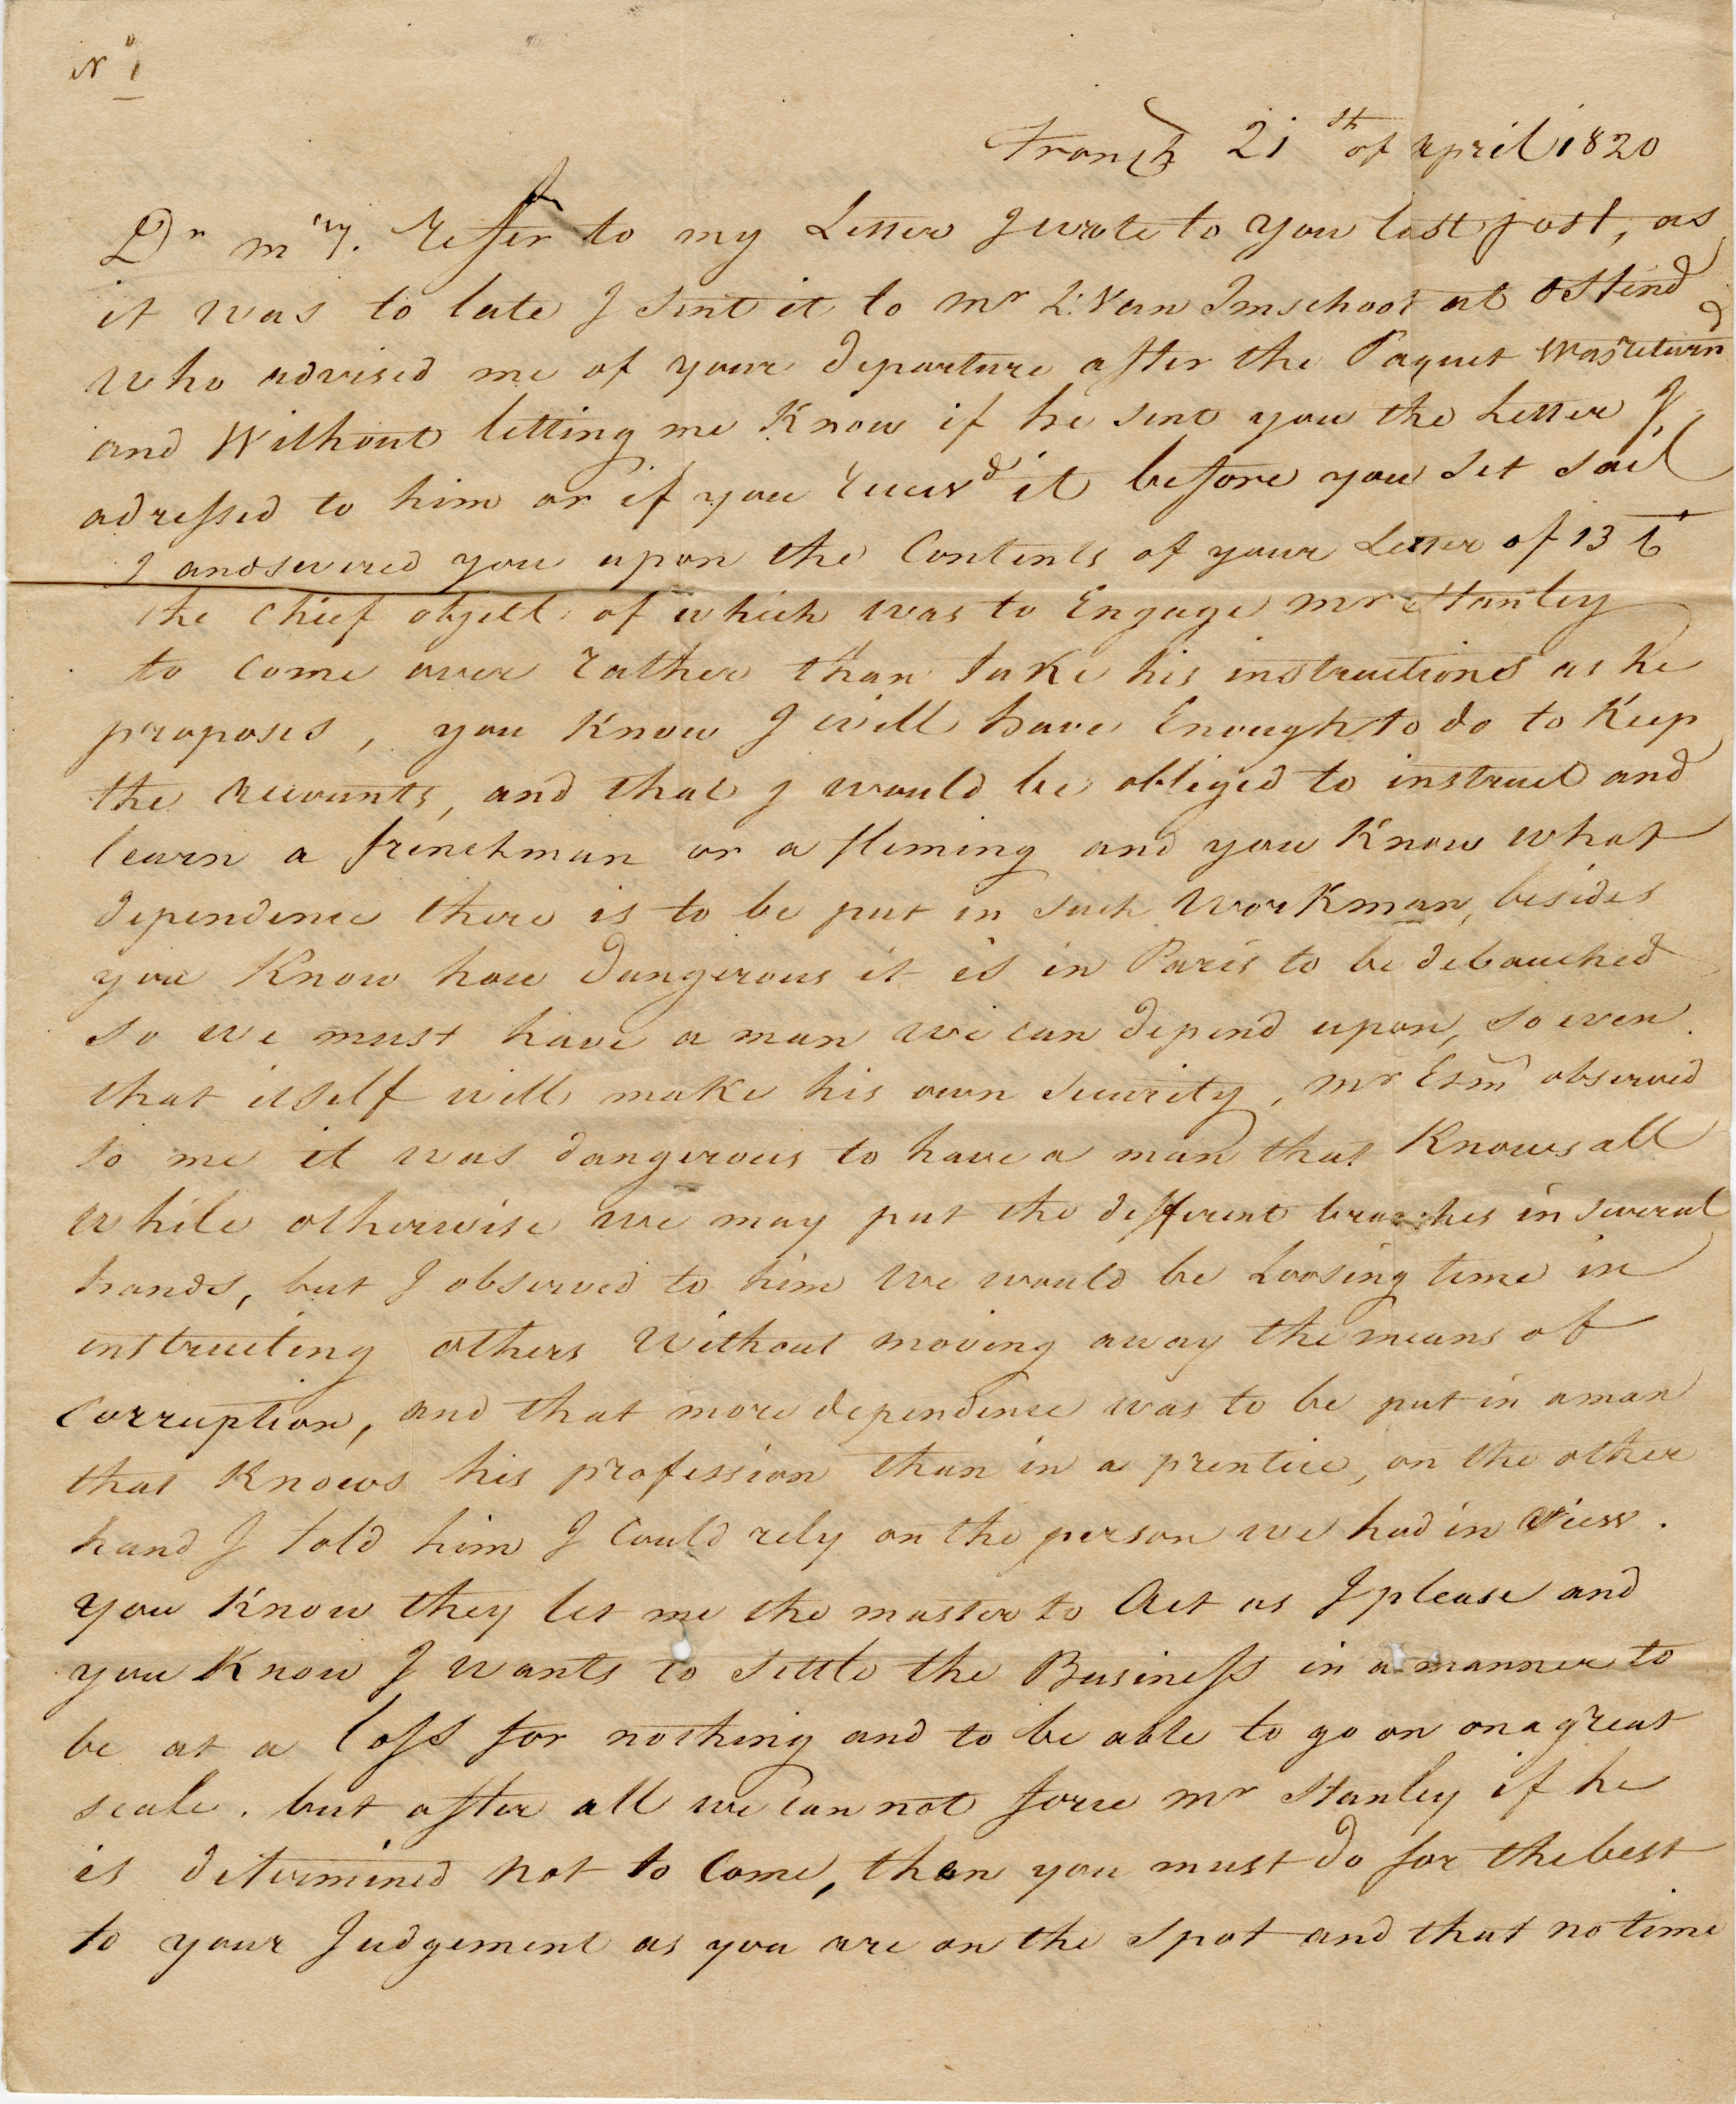 No 1
21st of april 1820
Dr Refer to my Letter J wrote to you last post, as
it was to late J sent it to Mr L: Van Imschoot at Ostend
who advised me of your departure after the Paquet was returnd
and Without letting me Know if he sent you the Letter J
adressed to him or if you receivd it before you set sail
J andswered you upon the Contents of your Letter of 13
the chief object of which was to Engage mr Stanley
to come over rather than take his instructions as he
proposes, you Know J will have Enough to do to Keep
the accounts, and that J would be obliged to instruct and
learn a frenchman or a fleming and you Know what
dependence there is to be put in such Workman, besides
you Know how dangerous it is in Paris to be debauched
so we must have a man we can depend upon, so even
that itself will make his own security, mr observed
to me it was dangerous to have a man that Knows all
while otherwise we may put the different branches in several
hands, but J observed to him we would be Loosing time in
instructing others Without moving away the means of
Corruption, and that more dependence was to be put in a man
that Knows his profession than in a prentice, on the other
hand J told him J Could rely on the person we had in View.
you Know they let me the master to Act as J please and
you Know J wants to settle the Business in a manner to
be at a loss for nothing and to be able to go on on a great
scale. but after all we can not force mr Stanley if he
is determined not to Come, then you must do for the best
to your Judgement as you are on the spot and that no time